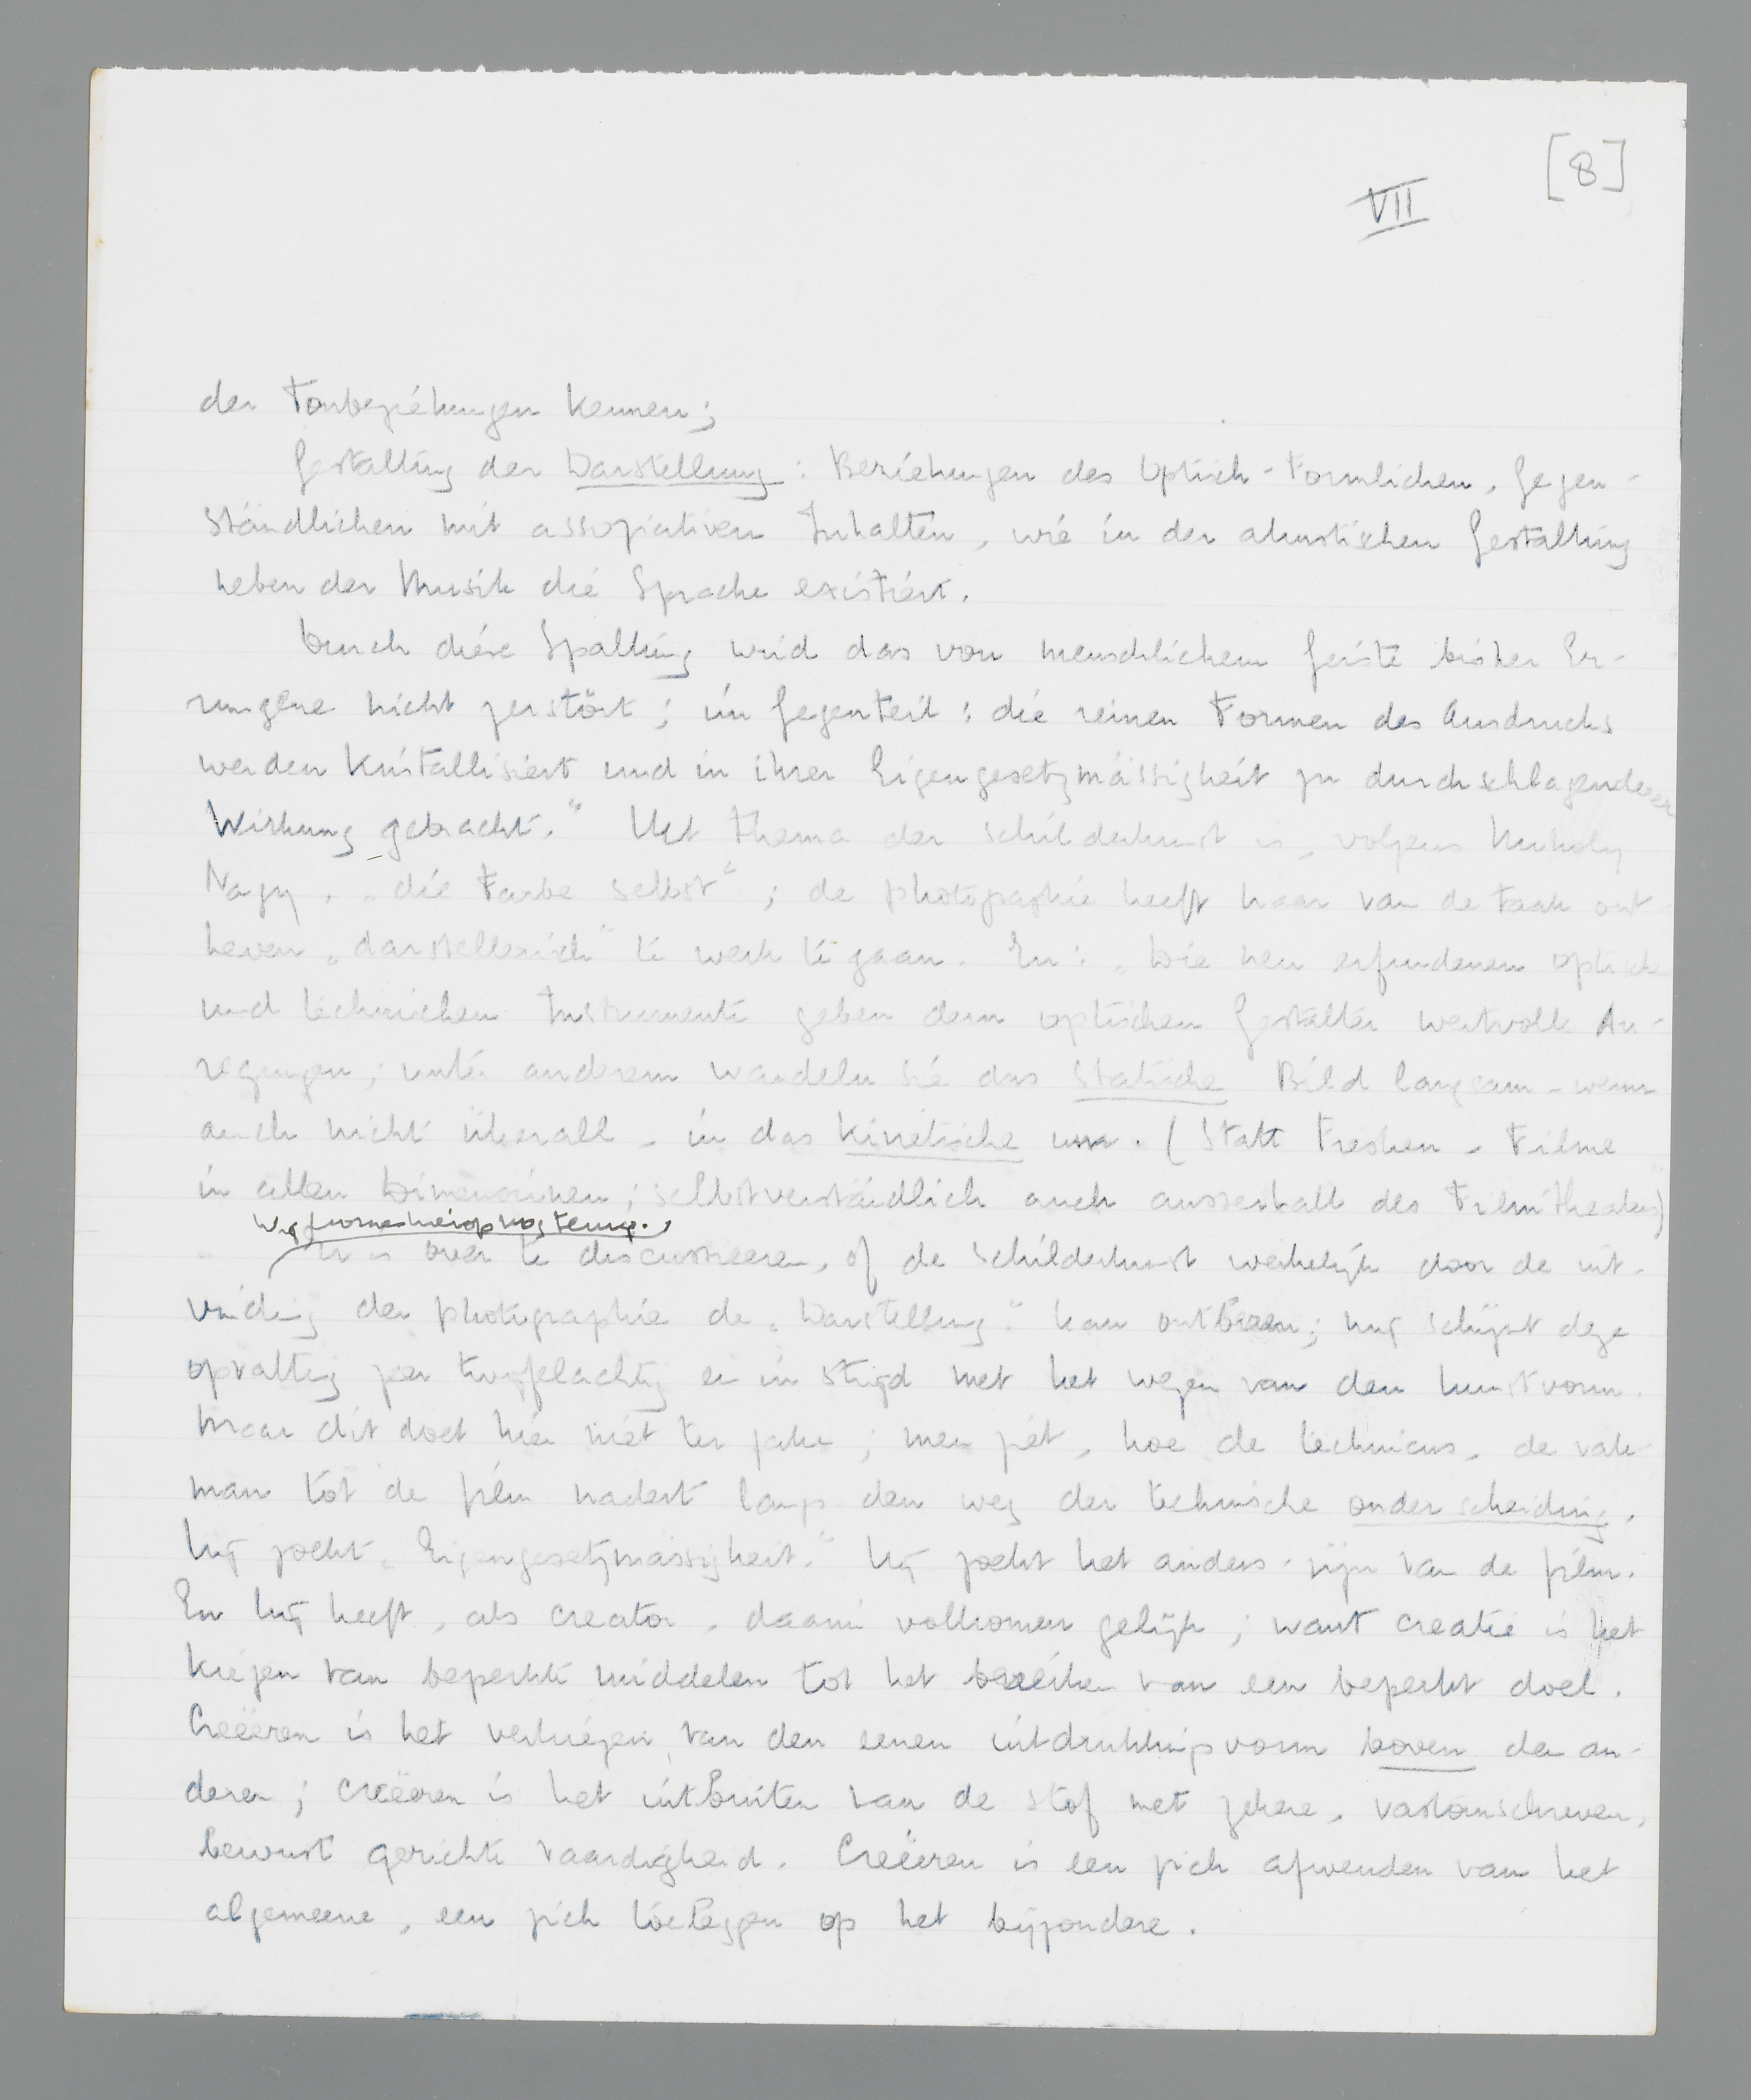 [8]
VII
der Tonbeziehungen kennen;
Gestaltung der Darstellung: Beziehungen des Optisch-Formlichen, Gegen-
ständlichen mit assoziativen Inhalten, wie in der akustischen Gestaltung
neben der Musik die Sprache existiert.
Durch diese Spaltung wird das von menschlichem Geiste bisher Er-
rungene nicht zerstört; im Gegenteil: die reinen Formen des Ausdrucks
werden kristallisiert und in ihrer Eigengesetzmässigkeit zu durchschlagenderer
Wirkung gebracht.” Het thema der schilderkunst is, volgens Moholy
Nagy, „die Farbe selbst”; de photographie heeft haar van de taak ont-
heven „darstellerisch” te werk te gaan. En: „Die neu erfundenen optischen
und technischen Instrumente geben dem optischen Gestalter wertvolle An-
regungen; unter anderem wandeln sie das statische Bild langsam - wenn
auch nicht überall - in das kinetische um. (Statt Fresken - Filme
in allen Dimensionen; selbstverständlich auch ausserhalb des Filmtheaters)”
Wij komen hierop nog terug.
Er is over te discussieeren, of de schilderkunst werkelijk door de uit-
vinding der photographie de „Darstellung” kan ontberen; mij schijnt deze
opvatting zeer twijfelachtig en in strijd met het wezen van den kunstvorm.
Maar dit doet hier niet ter zake; men ziet, hoe de technicus, de vak-
man tot de film nadert langs den weg der technische onderscheiding.
Hij zoekt „Eigengesetzmässigheit.” Hij zoekt het anders-zijn van de film.
En hij heeft, als creator, daarin volkomen gelijk; want creatie is het
kiezen van beperkte middelen tot het bereiken van een beperkt doel.
Creëeren is het verkiezen van den eenen uitdrukkingsvorm boven den an-
deren; creëeren is het uitbuiten van de stof met zekere, vastomschreven,
bewust gerichte vaardigheid. Creëeren is een zich afwenden van het
algemeene, een zich toeleggen op het bijzondere.